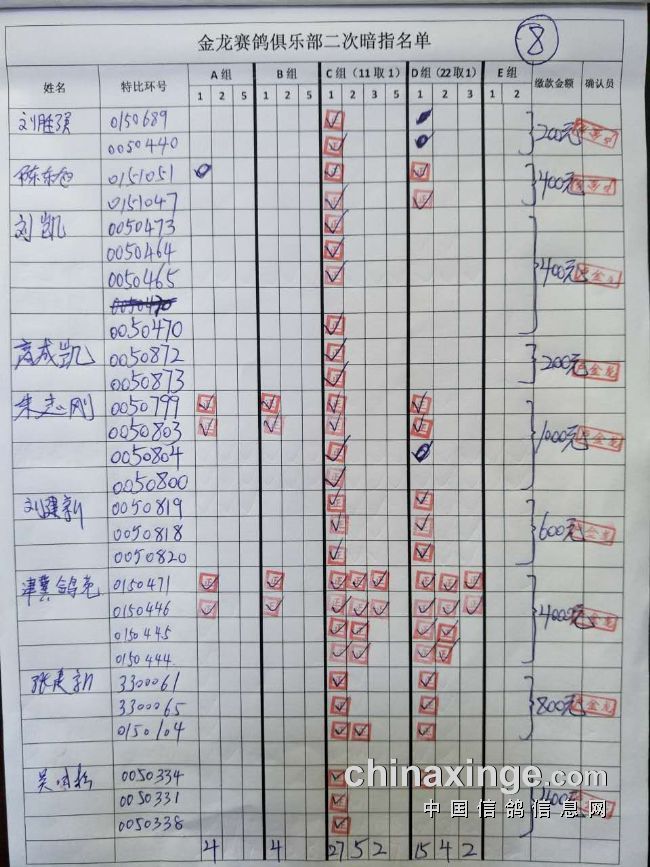 金龙赛鸽俱乐部二次暗指名单 8
姓名 特比环号 A组 B组 C组（11取1） D组（22取1） E组 缴款金额 确认员
1 2 5 1 2 5 1 2 3 5 1 2 3 1 2
刘胜强 0150689
0050440 200元
陈东旭 0151051
0151047 400元
刘凯 0050473
0050464
0050465 400元
0050470
0050470
高成凯 0050872
0050873 200元
朱志刚 0050799
0050803 1000元
0050804
0050800
刘建新 0050819
0050818 600元
0050820
津冀鸽苑 0150471
0150446 4000元
0150445
0150444
张建新 3300061
3300065 800元
0150104
0050334
0050331
0050338
4 4 27 5 2 15 4 2
chinaxinge.com
中国信鸽信息网